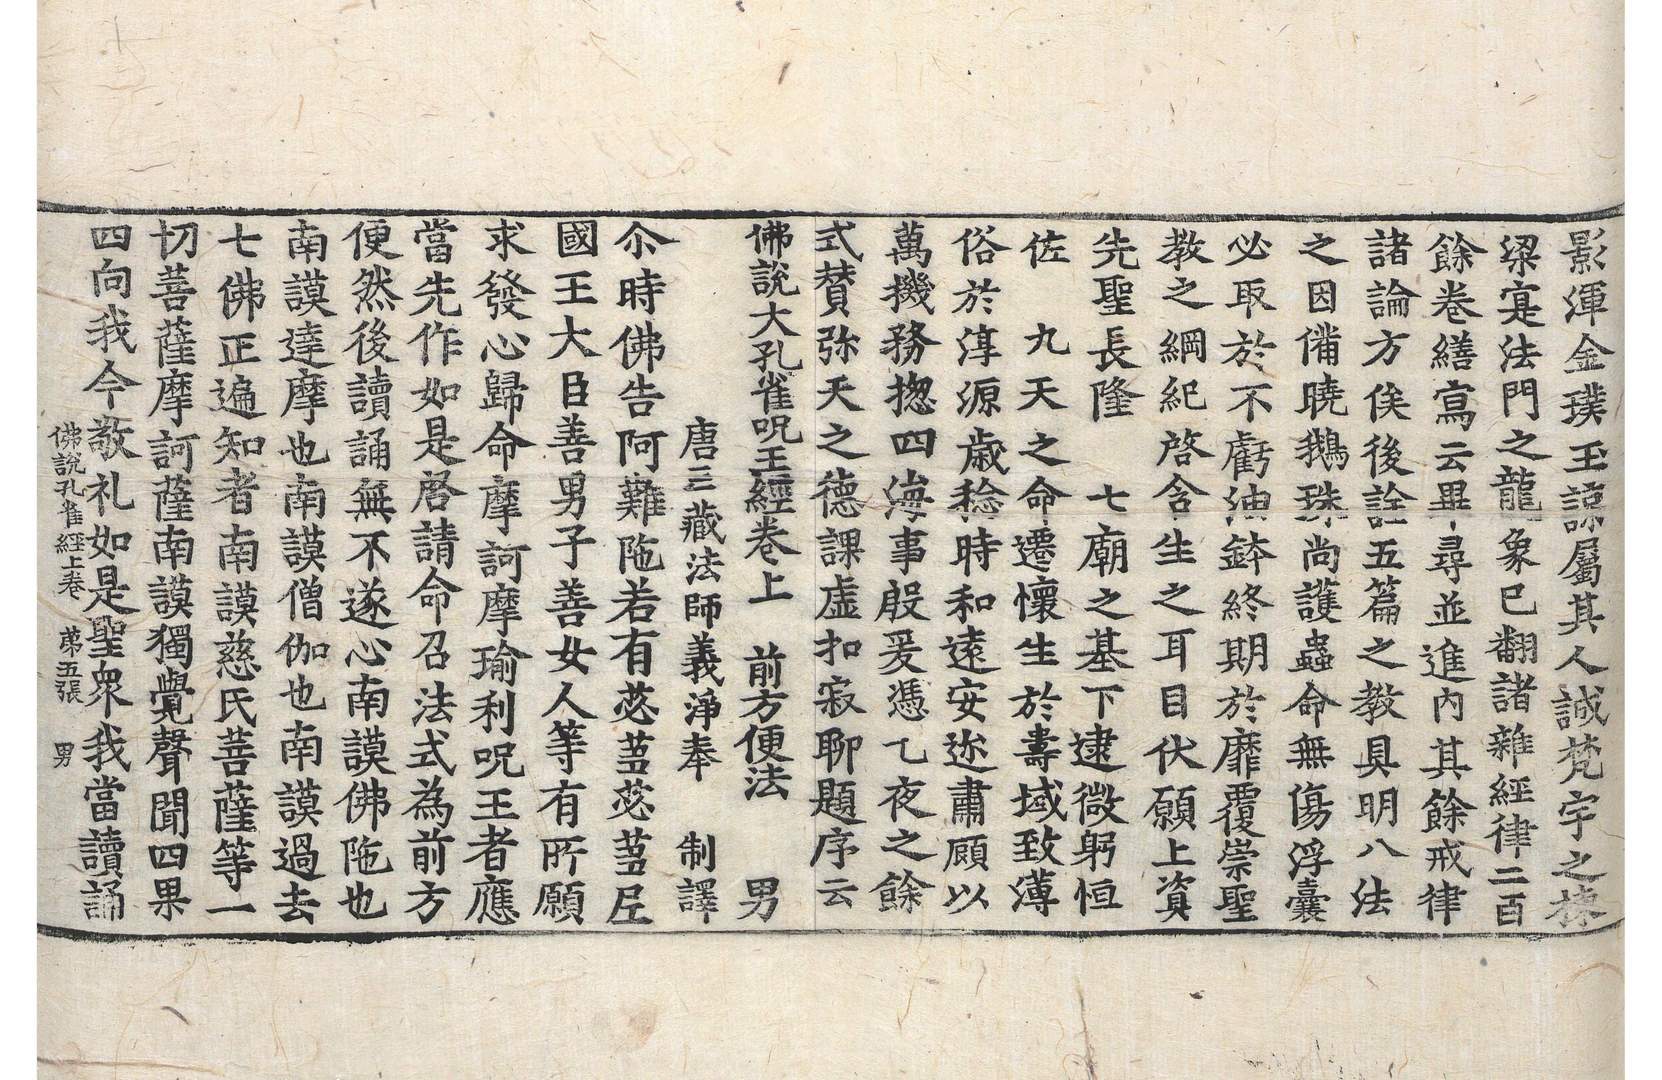 影渾金璞玉諒屬其人誠梵宇之棟
梁寔法門之龍象巳翻諸雜經律二百
餘卷繕寫云畢尋並進內其餘戒律
諸論方俟後詮五篇之教具明八法
之因俻曉鵝珠尚護蟲命無傷浮囊
必取於不虧油鉢終期於靡覆崇聖
教之綱紀啓含生之耳目伏願上資
先聖長隆　七廟之基下逮微躬恒
佐　九天之命遷懷生於壽域致薄
俗於淳源歲稔時和遠安迩肅顧以
萬機務揔四海事殷爰憑乙夜之餘
式賛弥天之德課虛扣寂聊題序云
佛說大孔雀呪王經卷上　前方便法　男
唐三藏法師義淨奉　制譯
尒時佛告阿難陁若有苾蒭苾蒭尼
國王大臣善男子善女人等有所願
求發心歸命摩訶摩瑜利呪王者應
當先作如是啓請命召法式為前方
便然後讀誦無不遂心南謨佛陁也
南謨達摩也南謨僧伽也南謨過去
七佛正遍知者南謨慈氏菩薩等一
切菩薩摩訶薩南謨獨覺聲聞四果
四向我今敬礼如是聖衆我當讀誦
佛說孔雀經上卷　苐五張　男